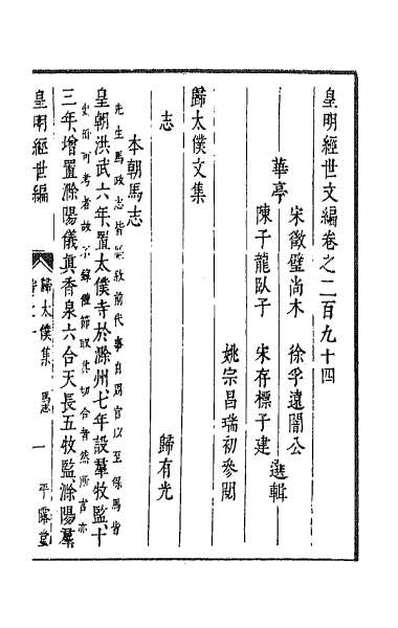 皇明經世文編卷之二百九十四
華亭
宋徵璧尚木　徐孚遠闇公
陳子龍臥子　宋存標子建　選輯
姚宗昌瑞初參閱
歸太僕文集　歸有光
志
本朝馬志
先生馬政志皆
敘前代事自周官以至保馬皆
可考者故不錄
節取其切合者然所言亦
皇朝洪武六年置太僕寺於滁州七年設羣牧監十
三年增置滁陽儀眞香泉六合天長五牧監滁陽羣
皇明經世編　歸太僕集　馬志　一　平露堂